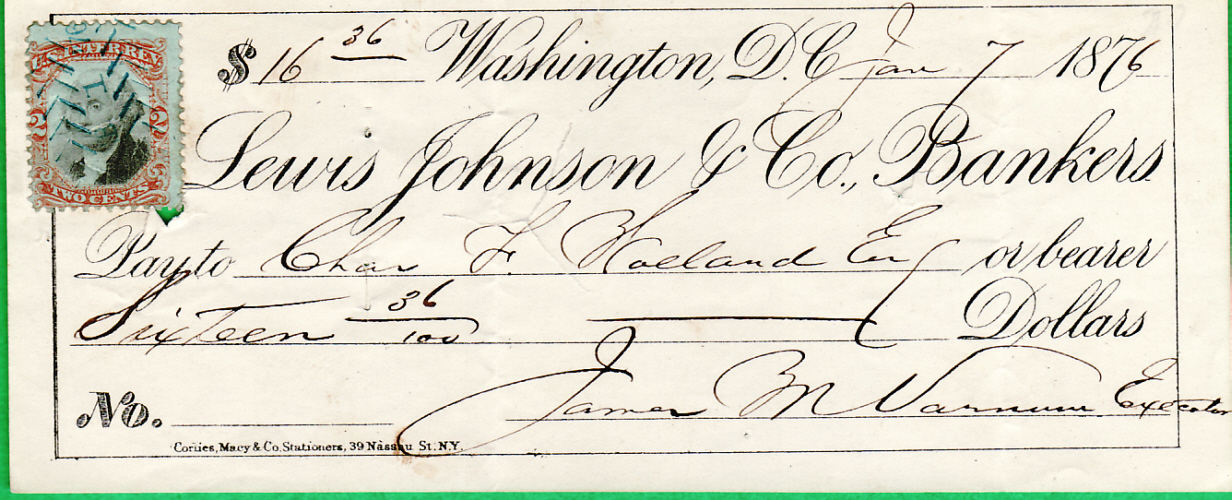 U.S. INTER. REV.
2 2
TWO CENTS
$ 16 36 Washington, D.C. Jan 7 1876
Lewis Johnson & Co., Bankers
Pay to Chas F. Holland Esq or bearer
Sixteen 36/100 Dollars
No. James M Varnum Executor
Corlies, Macy & Co. Stationers, 39 Nassau St. N.Y.